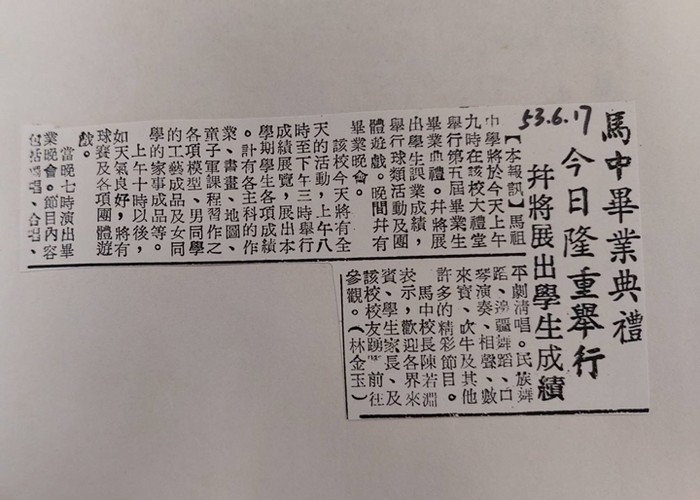 馬中畢業典禮
今日隆重舉行
幷將展出學生成績
53.6.17
【本報訊】馬祖
中學將於今天上午
九時在該校大禮堂
舉行第五屆畢業生
畢業典禮。幷將展
出學生課業成績，
舉行球類活動及團
體遊戲。晚間幷有
畢業晚會。
該校今天將有全
天的活動，上午八
時至下午三時舉行
成績展覽，展出本
學期學生各項成績
。計有各主科的作
業、書畫、地圖、
童子軍課程習作之
各項模型、男同學
的工藝成品及女同
學的家事成品等。
上午十時以後，
如天氣良好，將有
球賽及各項團體遊
戲。
當晚七時演出畢
業晚會。節目內容
包括獨唱、合唱、
平劇淸唱。民族舞
蹈、邊疆舞蹈、口
琴演奏、相聲、數
來寶、吹牛及其他
許多的精彩節目。
馬中校長陳若淵
表示，歡迎各界來
賓、學生家長、及
該校校友踴 前往
參觀。（林金玉）